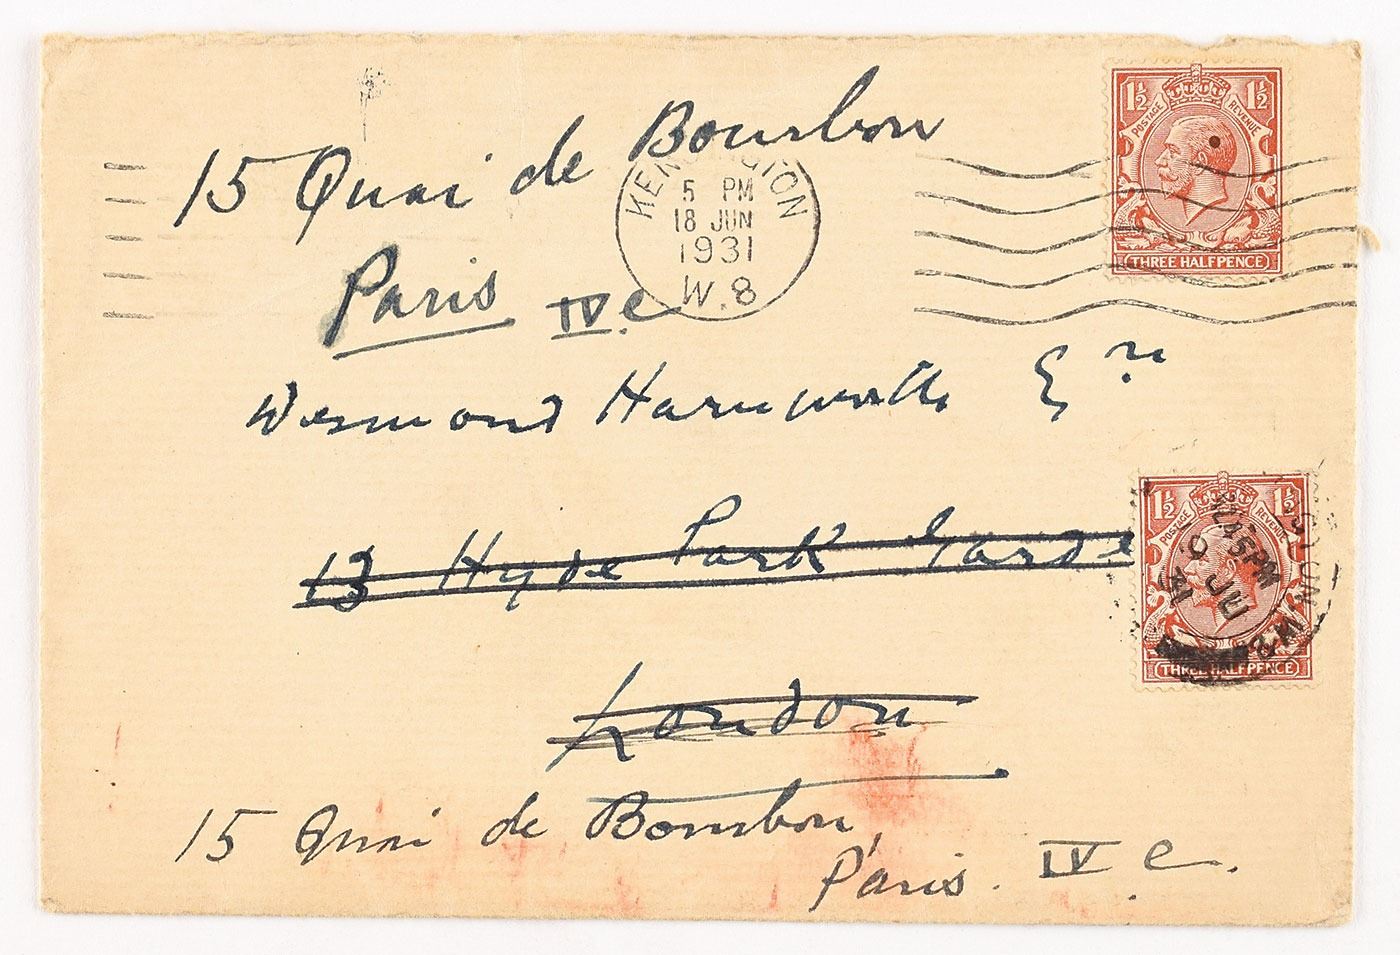 15 Quai de Bourbon
Paris IVe
KENSINGTON
5 PM
18 JUN
1931
W.8
1½ 1½
POSTAGE REVENUE
THREE HALFPENCE
Desmond Harmsworth Esqre
13 Hyde Park Garde
London
1½ 1½
POSTAGE REVENUE
THREE HALFPENCE
45PM
JUE
31
W.8
15 Quai de Bourbon,
Paris. IVe.